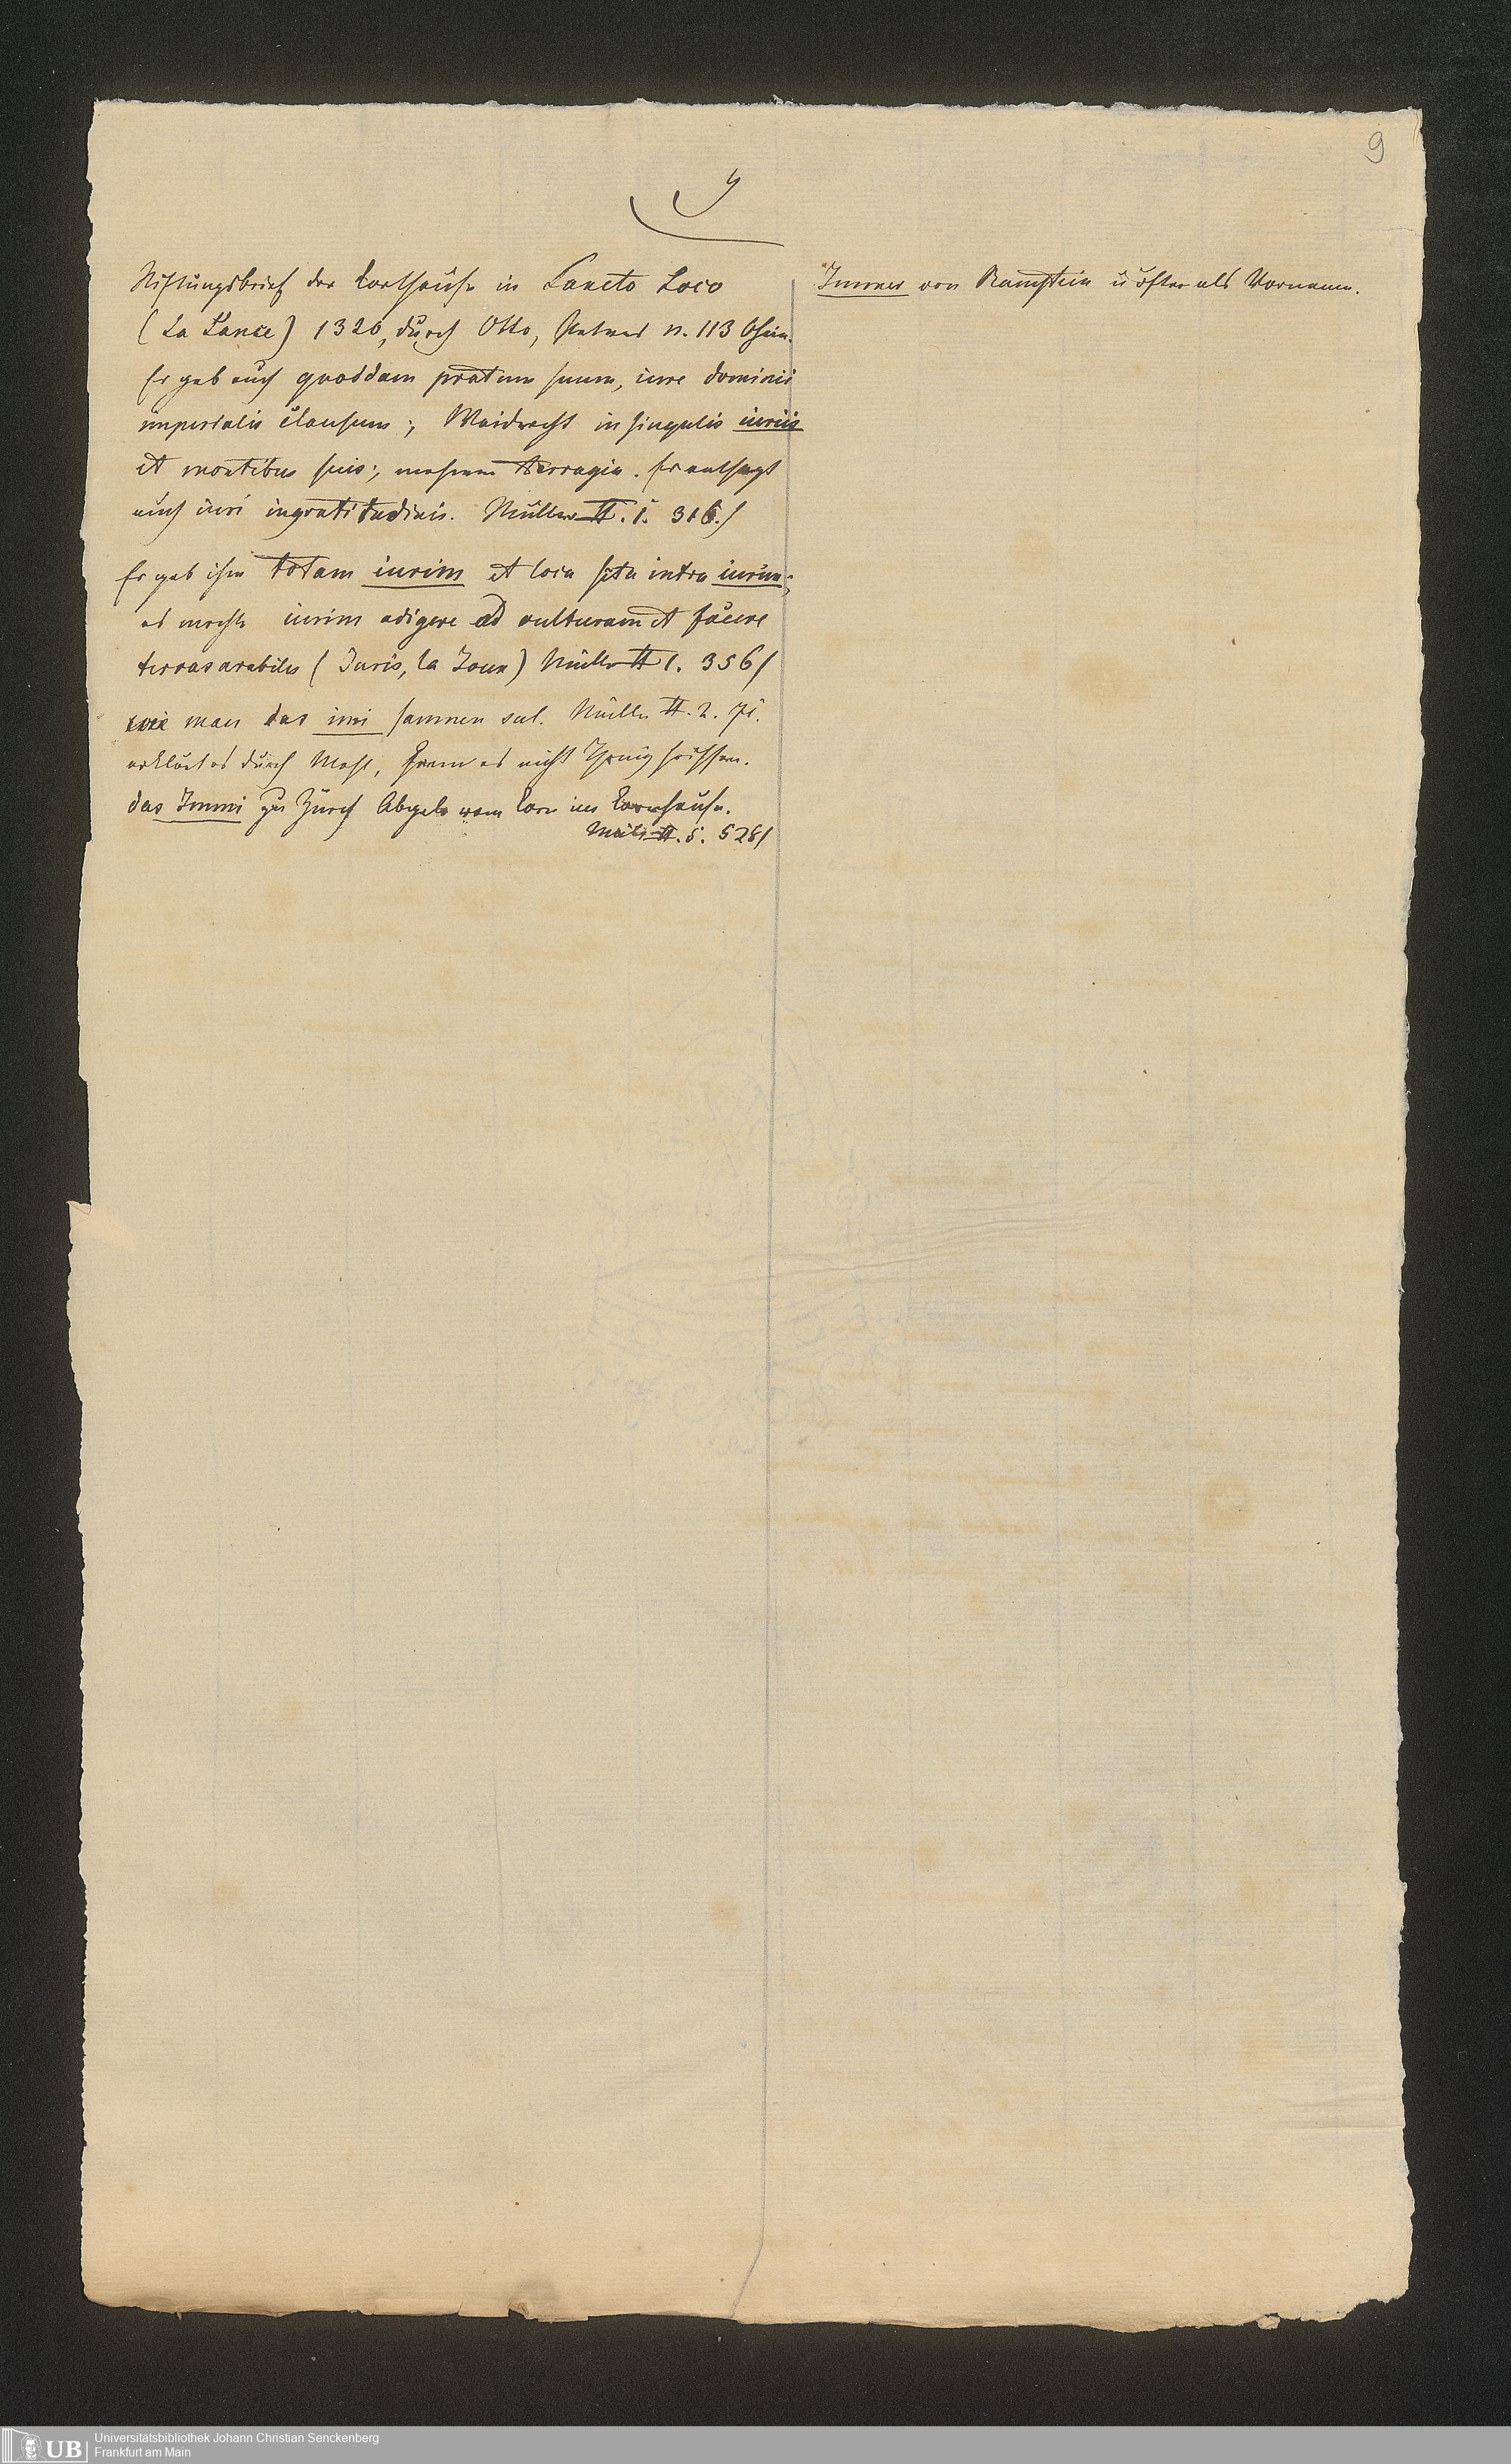 9
J
Stiftungsbrief der Karthause in Sancto Loco
(La Lance) 1320, durch Otto, n. 113
Er gab auch quoddam pratum suum, iure dominii
imperialis clausum; Waidrecht in singulis iuriis
et montibus suis; terragia. Er entsagt
auch iuri ingratitudinis. Müller II. 1. 316./
Er gab ihm totam iurim et loca sita intra iurim;
es mochte iurim adigere ad culturam et facere
terras arabiles (Juris, la Joux) Müller II 1. 356/
wie man das imi sammnen sul. Müller II. 2. 71.
erklärt es durch Mehl, es nicht Honig heissen.
das Immi zu Zürch Abgabe vom Korn im Kornhause.
Müller II. 5. 528/
Immer von Ramstein u öfter als Vorname.
Universitätsbibliothek Johann Christian Senckenberg
Frankfurt am Main
UB